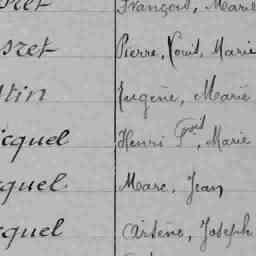 François, Marie
sret Pierre, Louis, Marie
stin Eugène, Marie
cquel Henri Fçois, Marie
cquel Marc, Jean
cquel Arsène, Joseph